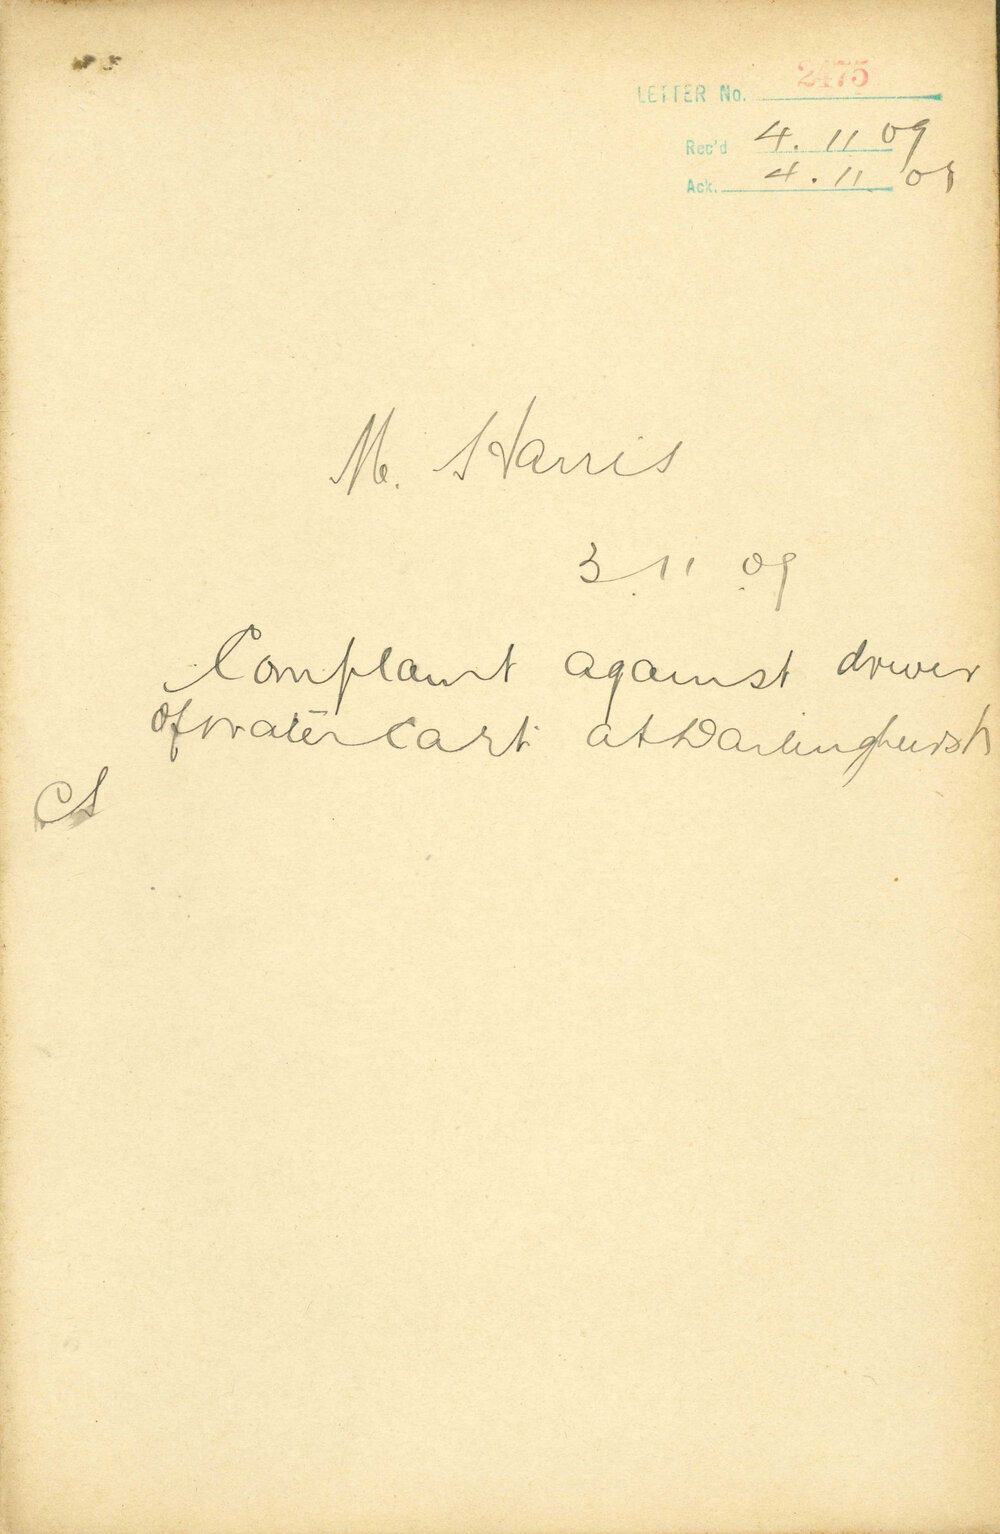 LETTER No. 2475
Rec'd 4. 11 09
Ack. 4. 11 09
M. Harris
3. 11. 09
Complaint against driver
of water cart at Darlinghurst
CS